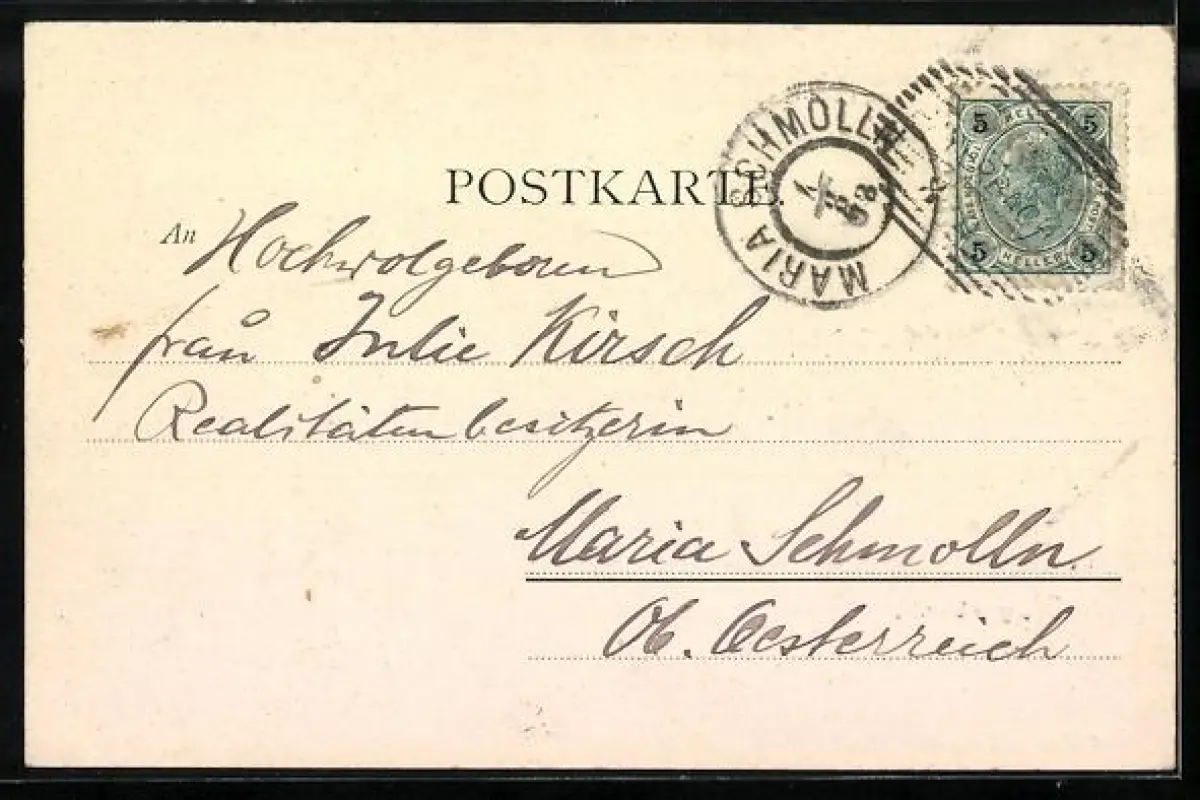 POSTKARTE.
MARIA SCHMOLLN
5 HELLER 5
5 HELLER 5
An Hochwolgeboren
frau Julie Kirsch
Realitätenbesitzerin
Maria Schmolln
Ob. Oesterreich